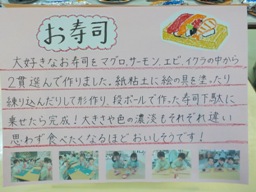 お寿司
大好きなお寿司をマグロ、サーモン、エビ、イクラの中から
2貫選んで作りました。紙粘土に絵の具を塗ったり
練り込んだりして形作り、段ボールで作った寿司下駄に
乗せたら完成!大きさや色の濃淡もそれぞれ違い
思わず食べたくなるほどおいしそうです!